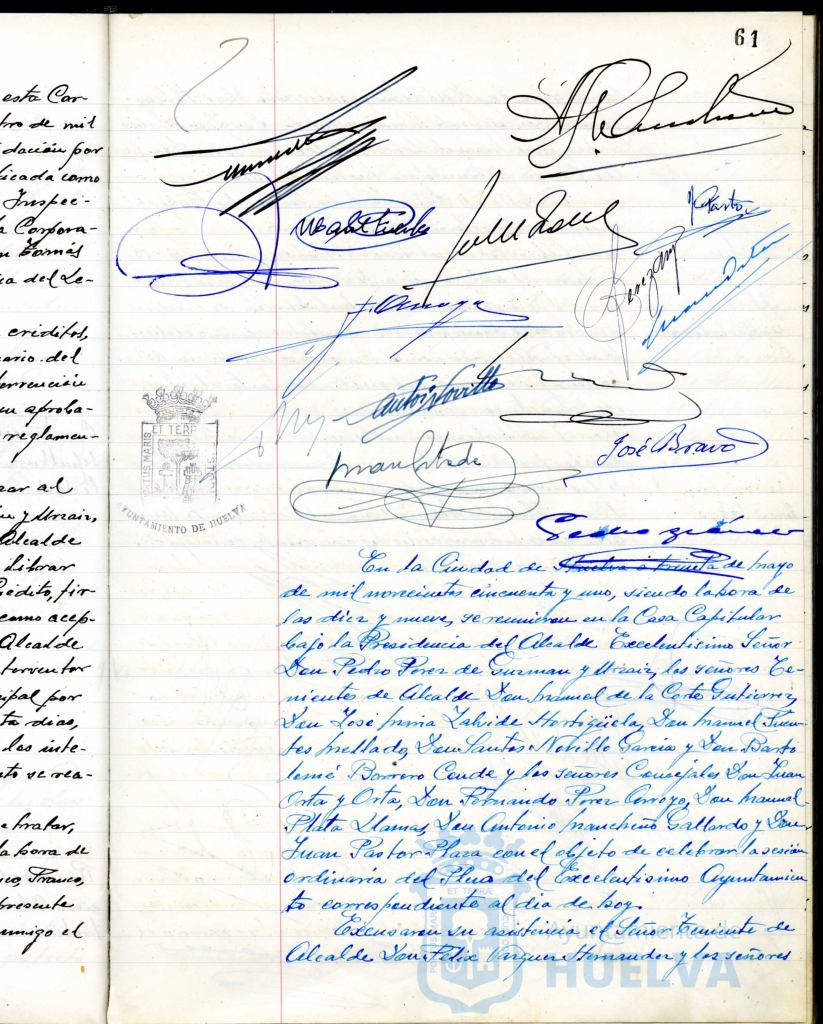 61
esta Cor-
tro de mil
dación por
icada como
Inspec-
a Corpora-
n Tomás
ia del Le-
creditos,
ario del
tervención
su aproba-
reglamen-
zar al
y Urzaiz,
Alcalde
Librar
Crédito, fir-
como acep-
Alcalde
terventor
ipal por
ta dias,
los inte-
to se rea-
e tratar,
la hora de
Franco,
presente
migo el
J. Arroyo
José Bravo
ET TERR
AYUNTAMIENTO DE HUELVA
En la Ciudad de Huelva a treinta de mayo
de mil novecientos cincuenta y uno, siendo la hora de
las diez y nueve, se reunieron en la Casa Capitular
bajo la Presidencia del Alcalde Excelentisimo Señor
Don Pedro Perez de Guzman y Urzaiz, los señores Te-
nientes de Alcalde Don Manuel de la Corte Gutierrez,
Don José Maria Zalvide Hortigüela, Don Manuel Fuen-
tes Mellado, Don Santos Novillo Garcia y Don Barto
lomé Borrero Conde y los señores Concejales Don Juan
Orta y Orta, Don Fernando Perez Arroyo, Don Manuel
Plata Llamas, Don Antonio Mancheño Gallardo y Don
Juan Pastor Plaza con el objeto de celebrar la sesión
ordinaria del Pleno del Excelentisimo Ayuntamien
to correspondiente al dia de hoy.
Excusaron su asistencia el Señor Teniente de
Alcalde Don Felix Vazquez Hernandez y los señores
Ayuntamiento de
HUELVA